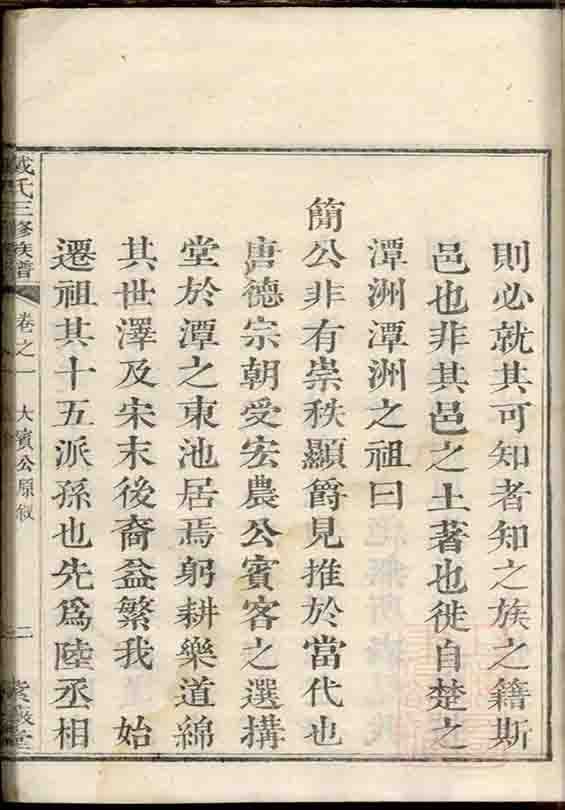 則必就其可知者知之族之籍斯
邑也非其邑之土著也徙自楚之
潭洲潭洲之祖曰
簡公非有崇秩顯爵見推於當代也
唐德宗朝受宏農公賓客之選搆
堂於潭之東池居焉躬耕樂道綿
其世澤及宋末後裔益繁我 始
遷祖其十五派孫也先爲陸丞相
戴氏三修族譜
卷之一
大賓公原敘
二